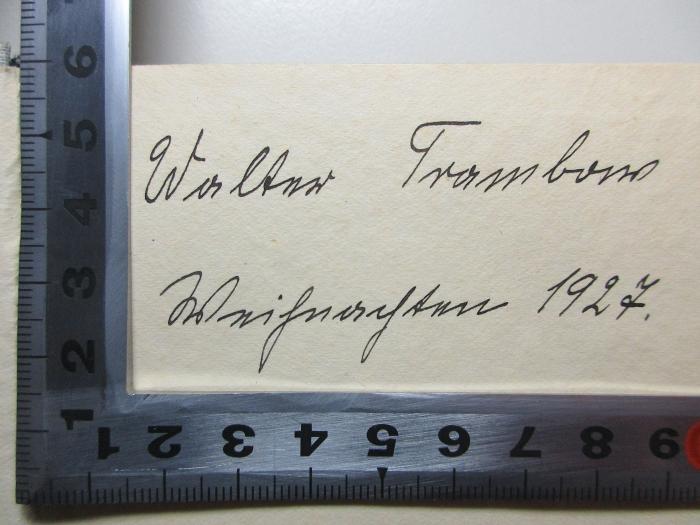 Walter Trambow
Weihnachten 1927.
6
5
4
3
2
1
1 2 3 4 5 6 7 8 9